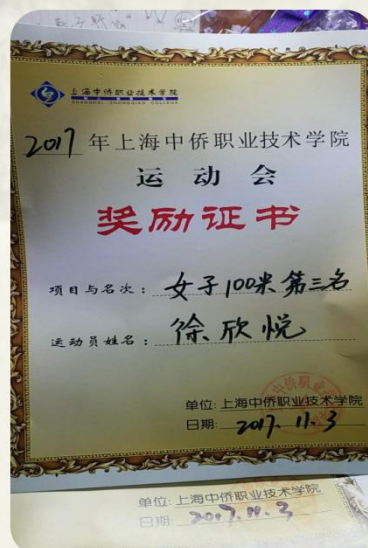 上海中侨职业技术学院
SHANGHAI ZHONGQIAO COLLEGE
2017年上海中侨职业技术学院
运动会
奖励证书
项目与名次：女子100米第三名
运动员姓名：徐欣悦
单位:上海中侨职业技术学院
日期: 2017.11.3
单位:上海中侨职业技术学院
日期 2017.11.3